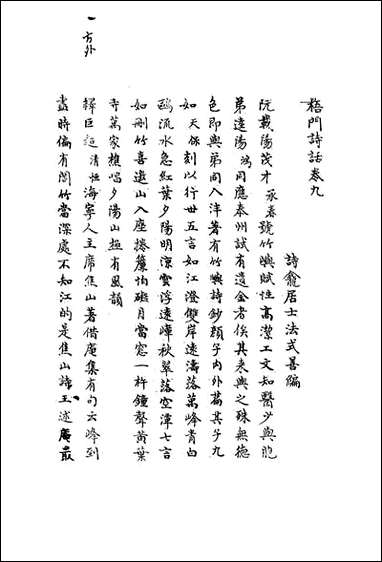 梧門詩話卷九
詩龕居士法式善編
阮載陽茂才承春號竹嶼賦性高潔工文知醫少與胞
弟遠陽鴻同應泰州試有遺金者俟其來與之殊無德
色即與弟同入泮著有竹嶼詩鈔穎子內外篇其子九
如天保刻以行世五言如江澄雙岸遠濤落萬峰青白
鷗流水急紅葉夕陽明涼雲浮遠嶂秋翠落空潭七言
如刪竹喜邀山入座捲簾怕礙月當窗一杵鐘聲黃葉
寺萬家樵唱夕陽山極有風韻
釋巨超清恒海寧人主席焦山著借庵集有句云峰到
盡時偏有閣竹當深處不知江的是焦山詩王述庵最
方外